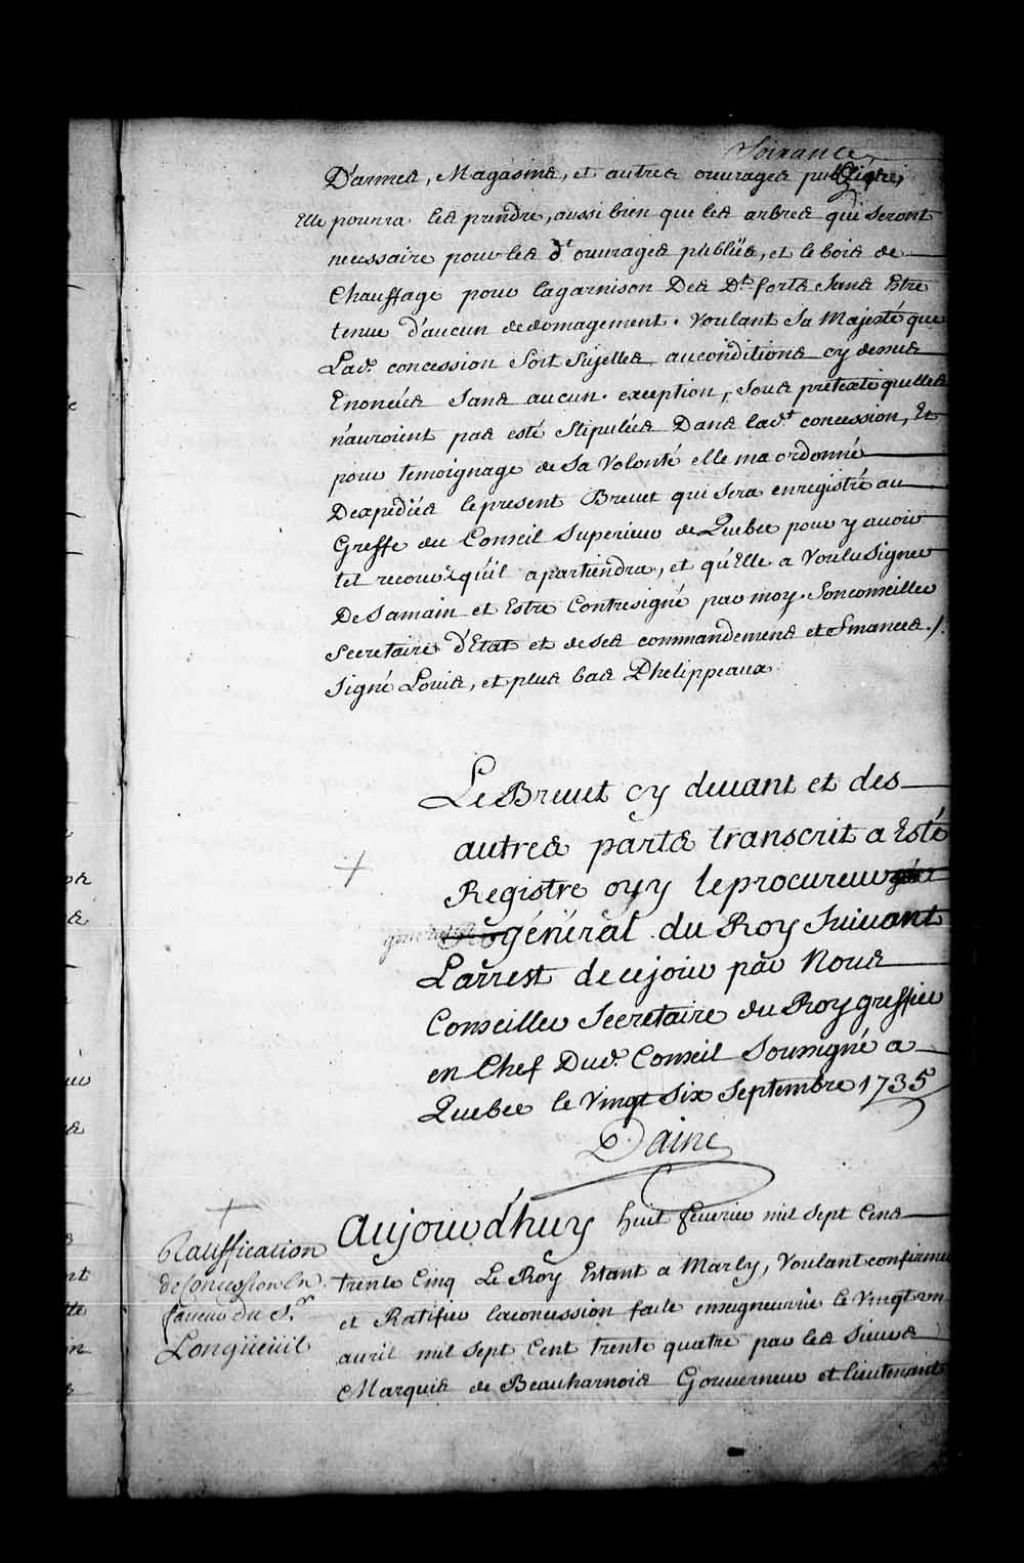 Soixante
D'armes, Magasins, et autres ouurages publiques,
Elle pourra les prendre, aussi bien que les arbres qui seront
necessaire pour les dt ouurages publics, et le bois de
Chauffage pour lagarnison Des Dts forts Sans Estre
tenue d'aucun dedomagement. Voulant Sa Majesté que
Lade concession Soit Sujettes auconditions cy dessus
Enoncées Sans aucun exception, Sous pretexte quelles
n'auroient pas esté Stipulées Dans ladt concession, Et
pour temoignage de Sa Volonté elle ma ordonné
Dexpediés lepresent Breuet qui Sera enregistré au
Greffe du Conseil Superieur deQuebec pour y auoir
tel recours qu'il apartiendra, et qu'Elle a VouluSigner
DeSamain et Estre Contresigné par moy. Sonconseiller
Secretaire d'Etat et deses commandemens et finances./.
Signé Louis, et plus bas Phelippeaux
Le Breuet cy deuant et des
autres parts transcrit a Esté
Registré oyy leprocureur
général du Roy Suiuant
Larrest decejour par Nous
Conseiller Secretaire du Roy greffier
en Chef Dud. Conseil Soussigné a
Quebec le Vingt Six Septembre 1735
Daine
Ratiffication
de Concession En
faueur du Sr
Longüeüil
Aujourd'huy huit feurier mil Sept Cens
trente Cinq Le Roy Estant a Marly, Voulant confirmer
et Ratifier laconcession faite enseigneurie le Vingt un
auril mil Sept Cent trente quatre par les Sieurs
Marquis de Beauharnois Gouuerneur et lieutenant